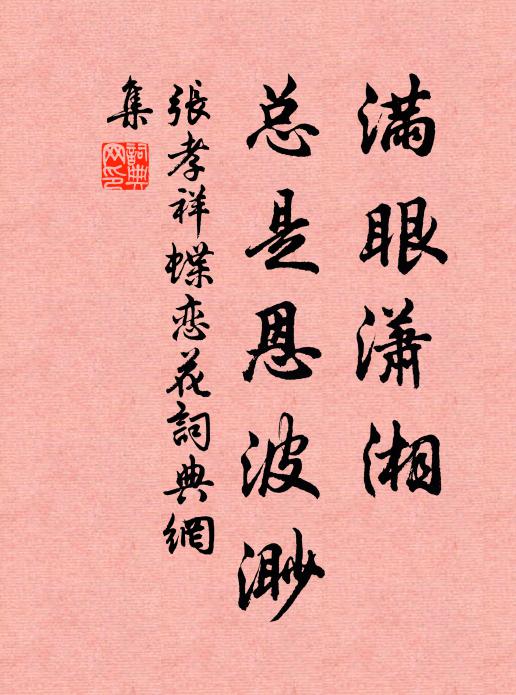 满眼潇湘
总是恩波渺
張孝祥蝶恋花詞典網
集
詞典
网印